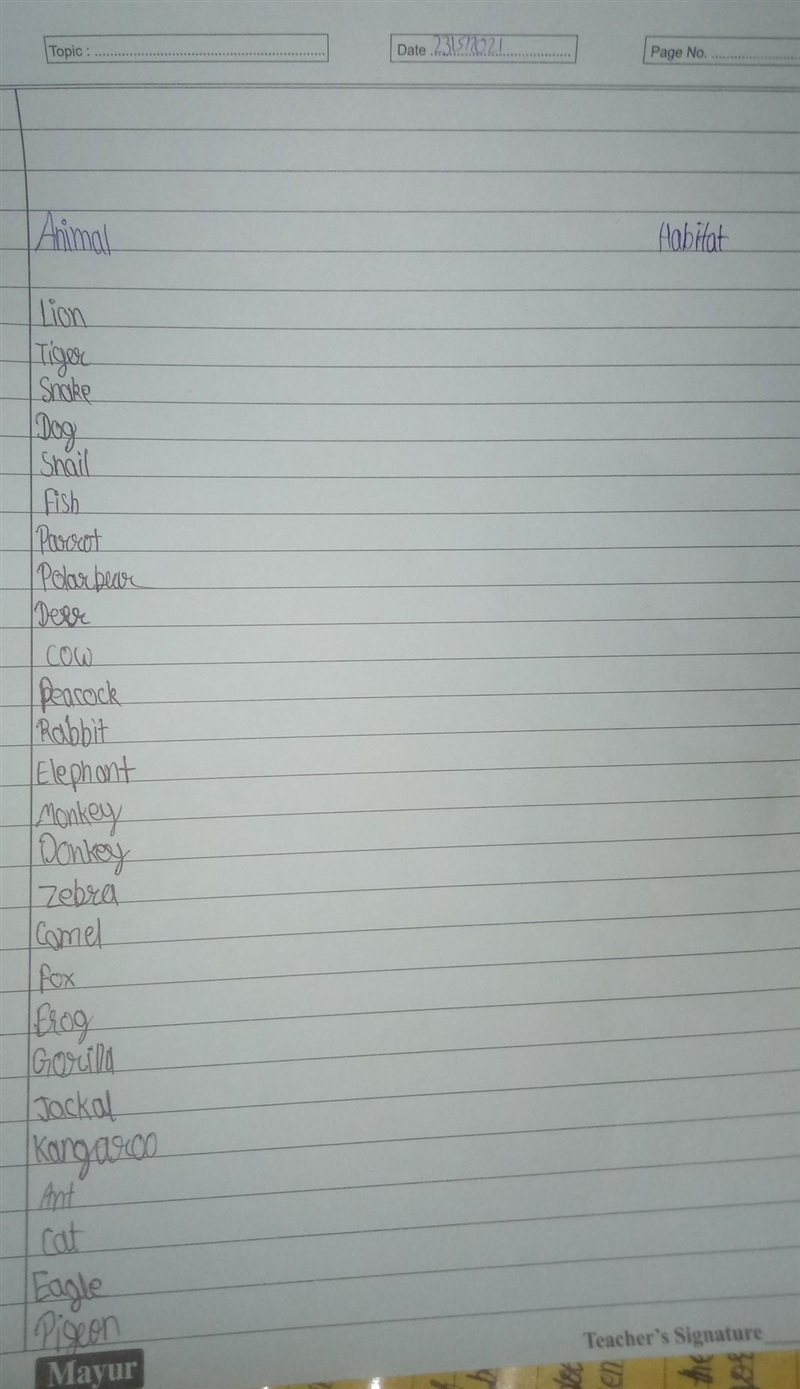 Topic : Date 23/5/2021 Page No.
Animal Habitat
Lion
Tiger
Snake
Dog
Snail
Fish
Parrot
Polar bear
Deer
Cow
Peacock
Rabbit
Elephant
Monkey
Donkey
Zebra
Camel
Fox
Frog
Gorilla
Jackal
Kangaroo
Ant
Cat
Eagle
Pigeon
Teacher's Signature
Mayur